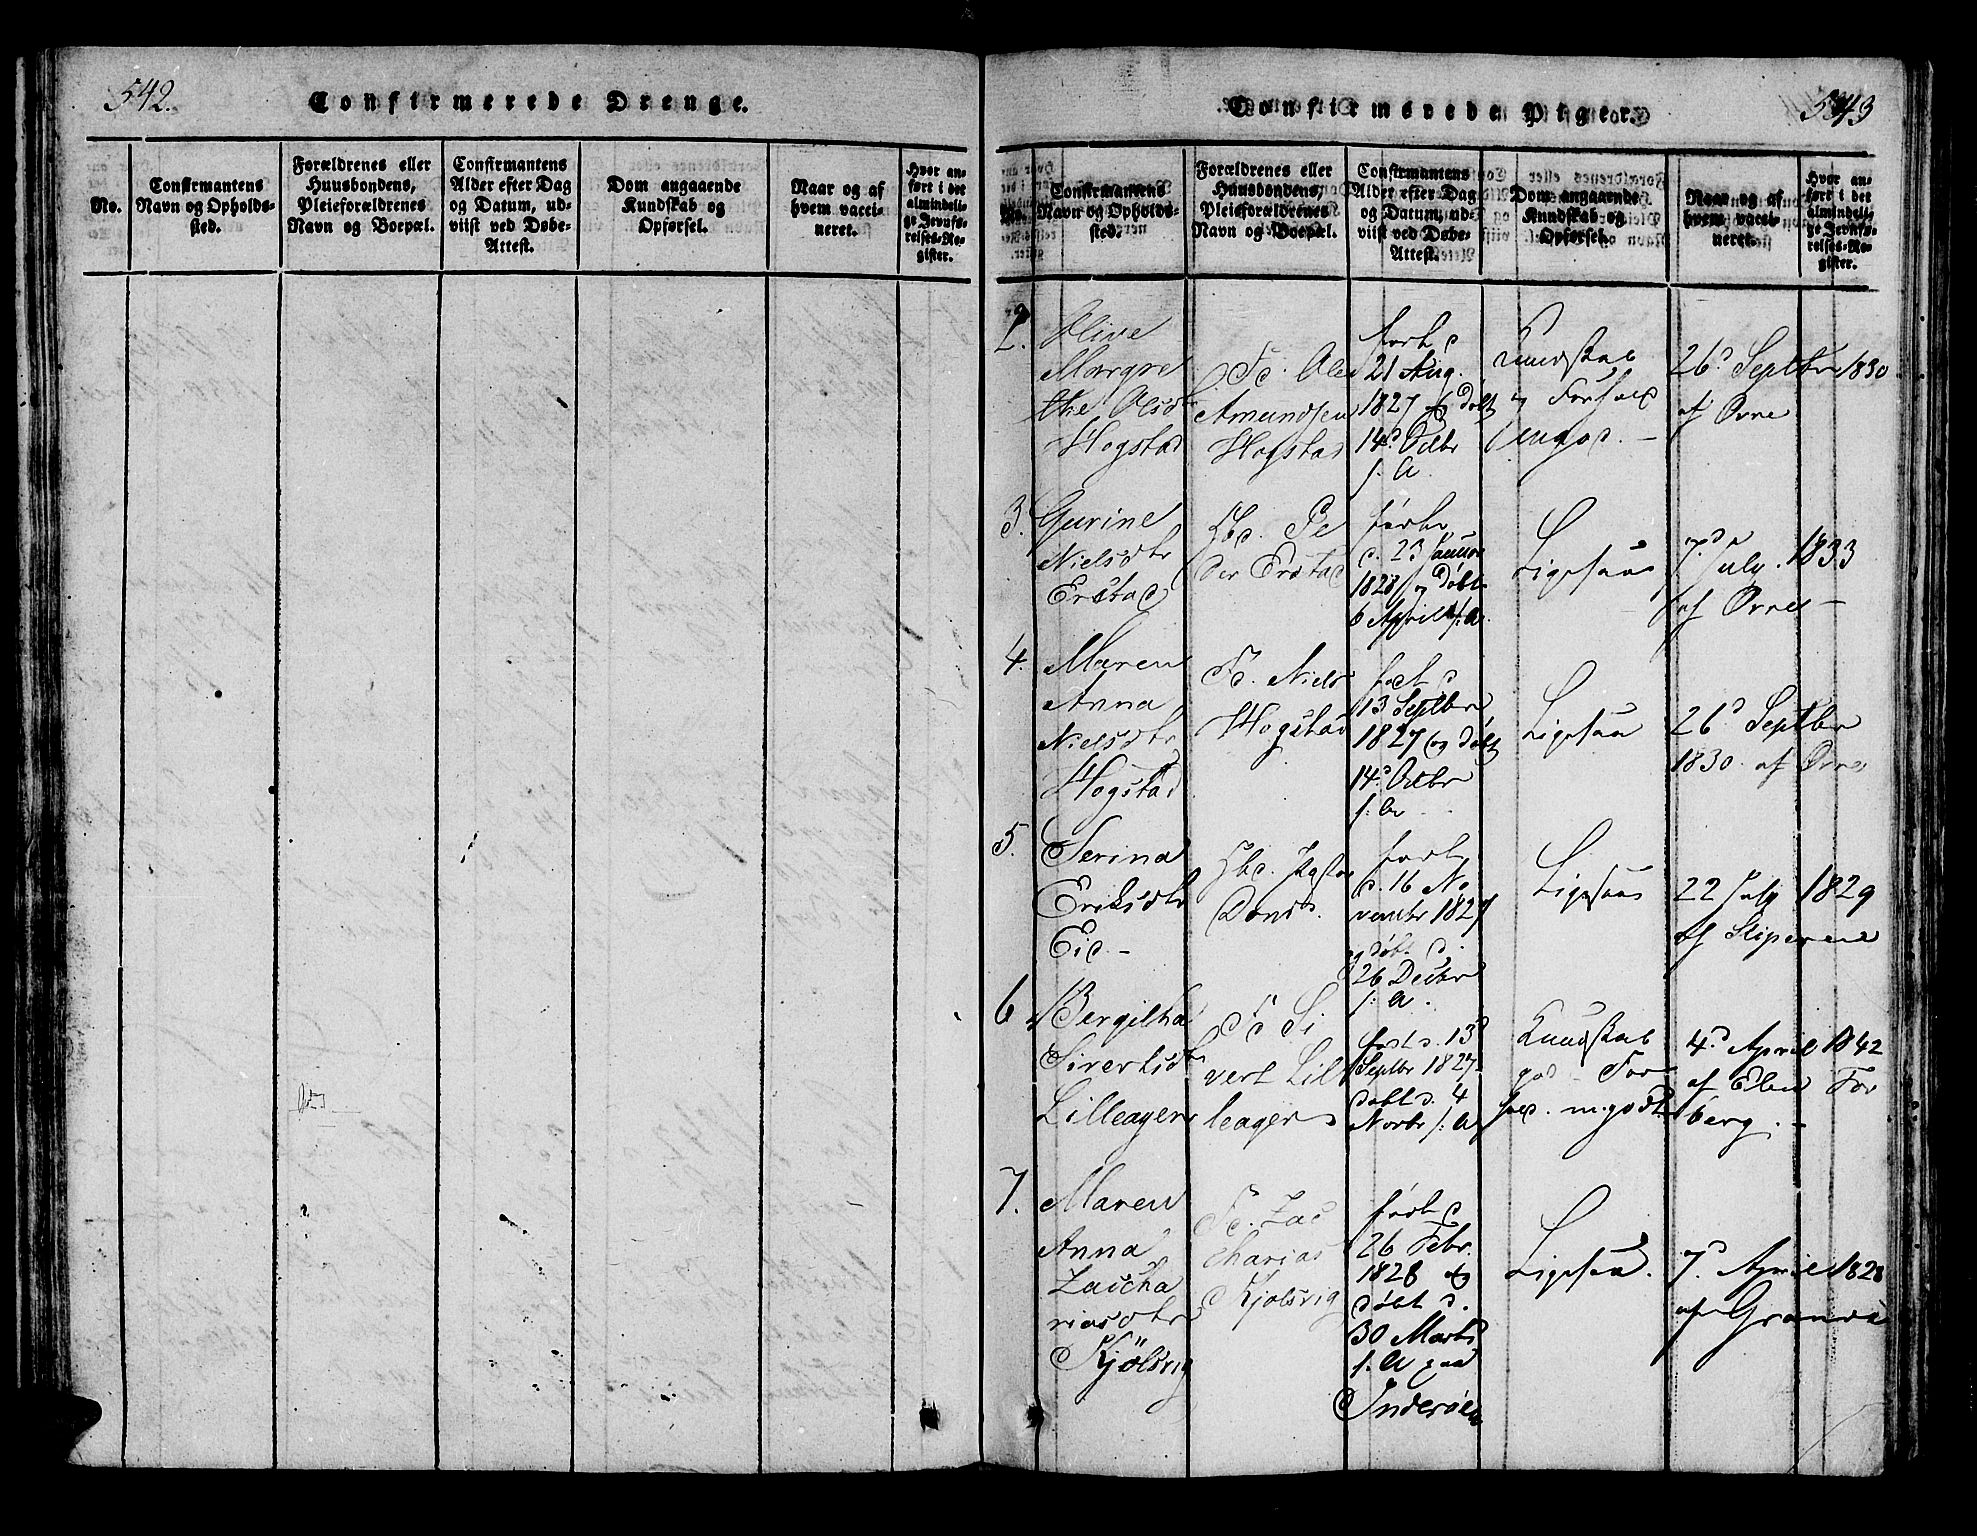 542.
Confirmerede Drenge.
No.
Confirmantens
Navn og Opholds-
sted.
Forældrenes eller
Huusbondens,
Pleieforældrenes
Navn og Boepæl.
Confirmantens
Alder efter Dag
og Datum, ud-
viist ved Døbe-
Attest.
Dom angaaende
Kundskab og
Opførsel.
Naar og af
hvem vacci-
neret.
Hvor an-
ført i det
almindeli-
ge Jevnfø-
relses-Re-
gister.
543
Confirmerede Piger.
No.
Confirmantens
Navn og Opholds-
sted.
Forældrenes eller
Huusbondens,
Pleieforældrenes
Navn og Boepæl.
Confirmantens
Alder efter Dag
og Datum, ud-
viist ved Døbe-
Attest.
Dom angaaende
Kundskab og
Opførsel.
Naar og af
hvem vacci-
neret.
Hvor an-
ført i det
almindeli-
ge Jevnfø-
relses-Re-
gister.
2.
Olive
Margre
the Olsdtr
Hogstad
Fd. Ole
Amundsen
Hogstad
født d
21 Aug.
1827 og døbt
14d Octbr
s. A.
Kundskab
og Forhold
26d Septbr 1830
af Ørne
3.
Gurine
Nielsdtr
Erstad
Hbd. Pe
der Erstad
født
d. 23 Januar
1828 og døbt
6 April s. A.
Ligesaa
7d July 1833
af Ørne
4.
Maren
Anna
Nielsdtr
Hogstad
Fd. Niels
Hogstad
født d
13 Septbr
1827 og døbt
14d Octbr
s. A.
Ligesaa
26d Septbr
1830 af Ørne
5.
Serina
Eriksdtr
Eid
Hbd.
født
d. 16 No
vembr 1827
og døbt d.
26 Decbr
s. A.
Ligesaa
22 July 1829
af
6.
Bergitha
Sivertsdtr
Lilleager
Fd Si
vert Lil
leager
født d. 13d
Septbr 1827
døbt d. 4
Novbr s. A.
Kundskab
god For
hold m. godt
4d April 1842
af
berg.
7.
Maren
Anna
Zacha
riasdtr
Kjölsvig
Fd. Zac
harias
Kjölsvig
født d
26 Febr.
1828 og
døbt d.
30 Marts
s. A paa
Inderøen
Ligesaa.
7d April 1828
af